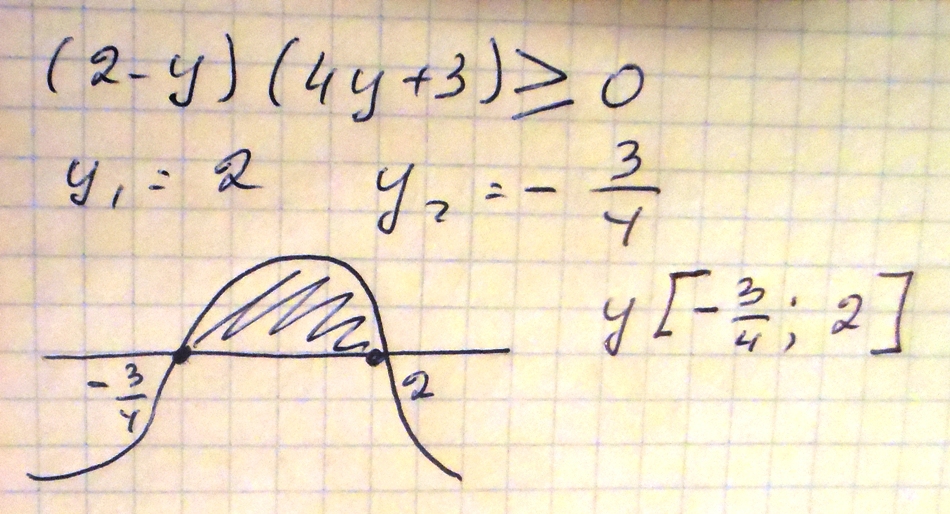 (2-y)(4y+3) ≥ 0
y₁ = 2 y₂ = - 3/4
y [- 3/4 ; 2]
- 3/4 2